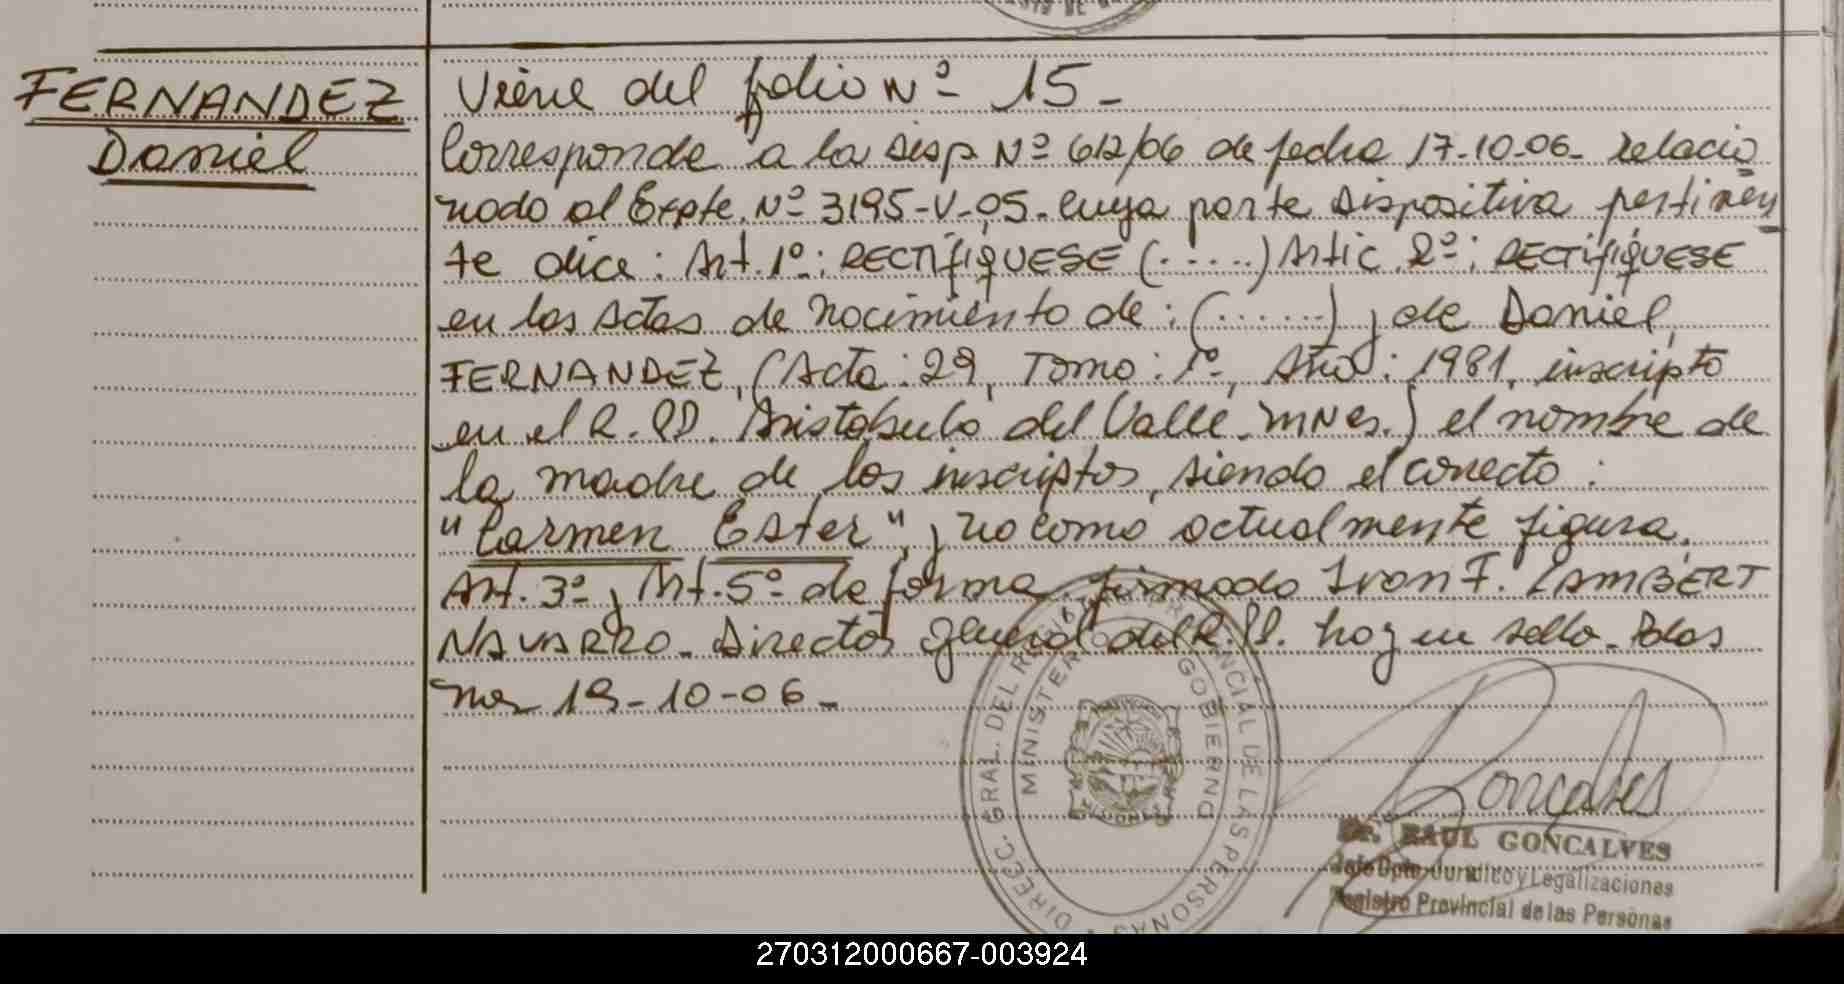 FERNANDEZ
Daniel
Viene del folio Nº 15-
Corresponde a la Disp Nº 612/06 de fecha 17-10-06- relacio
nado al Expte. Nº 3195-V-05. cuya parte dispositiva pertinen
te dice: Art. 1º: RECTIFIQUESE (.....) Artic. 2º: RECTIFIQUESE
en las Actas de Nacimiento de: (......) y de Daniel,
FERNANDEZ, (Acta: 29, Tomo: 1º, Año: 1981, inscripto
en el R.PP. Aristobulo del Valle-Mnes.) el nombre de
la madre de los inscriptos, siendo el correcto:
"Carmen Ester", y no como actualmente figura.
Art. 3º y Art. 5º de forma firmado Ivan F. LAMBERT
NAVARRO- Director General del R.PP. hay un sello- Posas
mes 19-10-06-
DIRECC. GRAL. DEL REGISTRO PROVINCIAL DE LAS PERSONAS
MINISTERIO GOBIERNO
MISIONES
Goncalves
Dr. RAUL GONCALVES
Jefe Dpto. Jurídico y Legalizaciones
Registro Provincial de las Personas
270312000667-003924